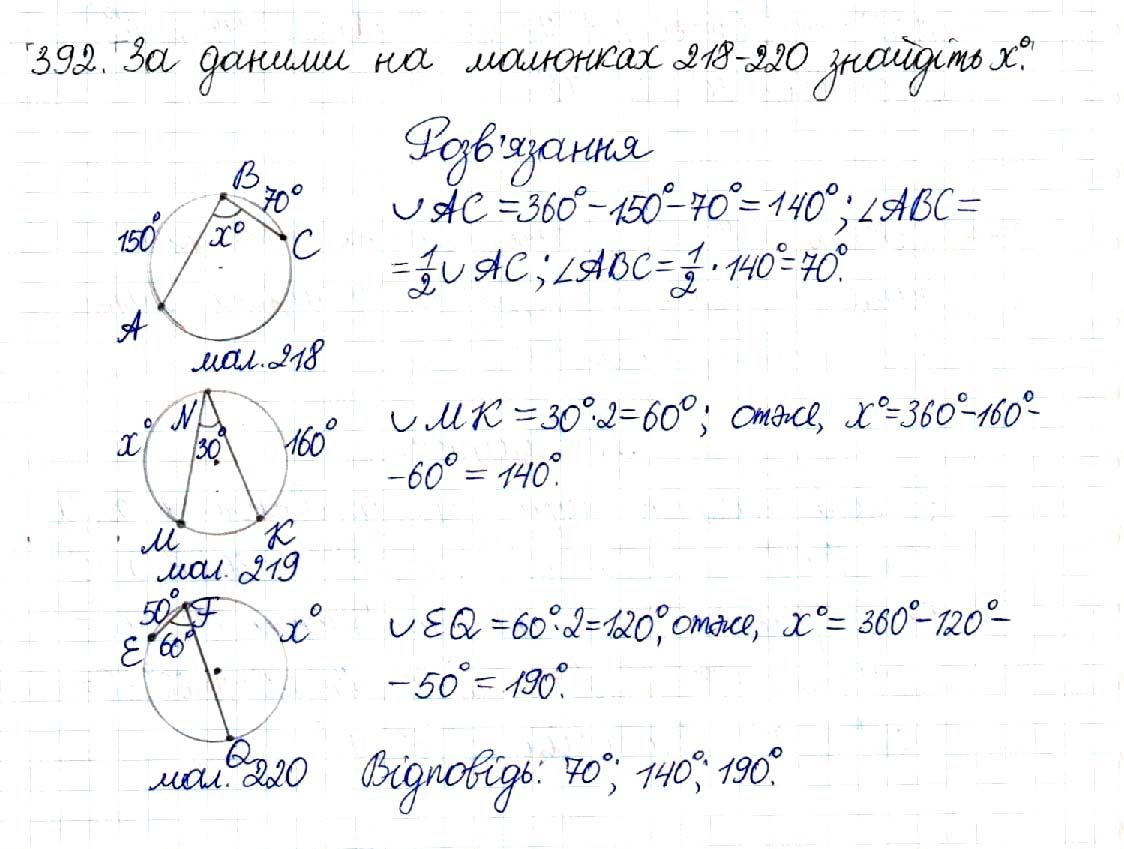 392. За даними на малюнках 218-220 знайдіть x°.
Розв'язання
B
70°
150°
x°
C
A
мал. 218
∪ AC = 360° - 150° - 70° = 140°; ∠ABC =
= 1/2 ∪ AC; ∠ABC = 1/2 · 140° = 70°.
N
x°
30°
160°
M
K
мал. 219
∪ MK = 30° · 2 = 60°; отже, x° = 360° - 160° -
- 60° = 140°.
50°
F
x°
E
60°
Q
мал. 220
∪ EQ = 60° · 2 = 120°, отже, x° = 360° - 120° -
- 50° = 190°.
Відповідь: 70°; 140°; 190°.